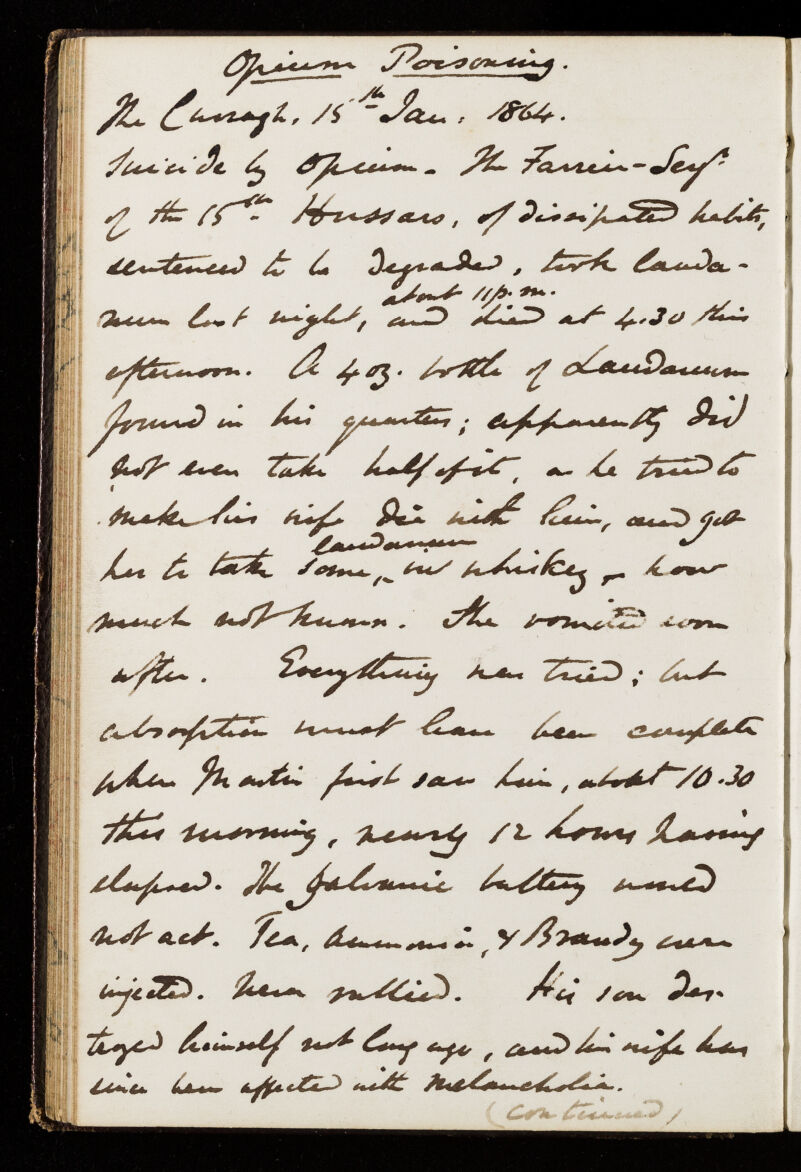 Opium Poisoning.
The Curragh, 15th Jan. 1864.
Suicide by Opium - The Farrier-Sergt
of the 15th Hussars, of dissipated habits,
sentenced to be degraded, took lauda-
about 11 p.m.
num last night, and died at 4.30 this
afternoon. A 4 oz. bottle of Laudanum
found in his quarters; apparently did
not even take half of it, as he tried to
make his wife die with him, and got
laudanum
her to take some, in whiskey - how
much not known. She vomited soon
after. Everything was tried; but
absorption must have been complete
when Martin first saw him, about 10.30
this morning, nearly 12 hours having
elapsed. The Galvanic battery would
not act. Tea, Ammonia, & Brandy were
injected. Never rallied. His son des-
troyed himself not long ago, and his wife has
since been affected with melancholia.
(continued)